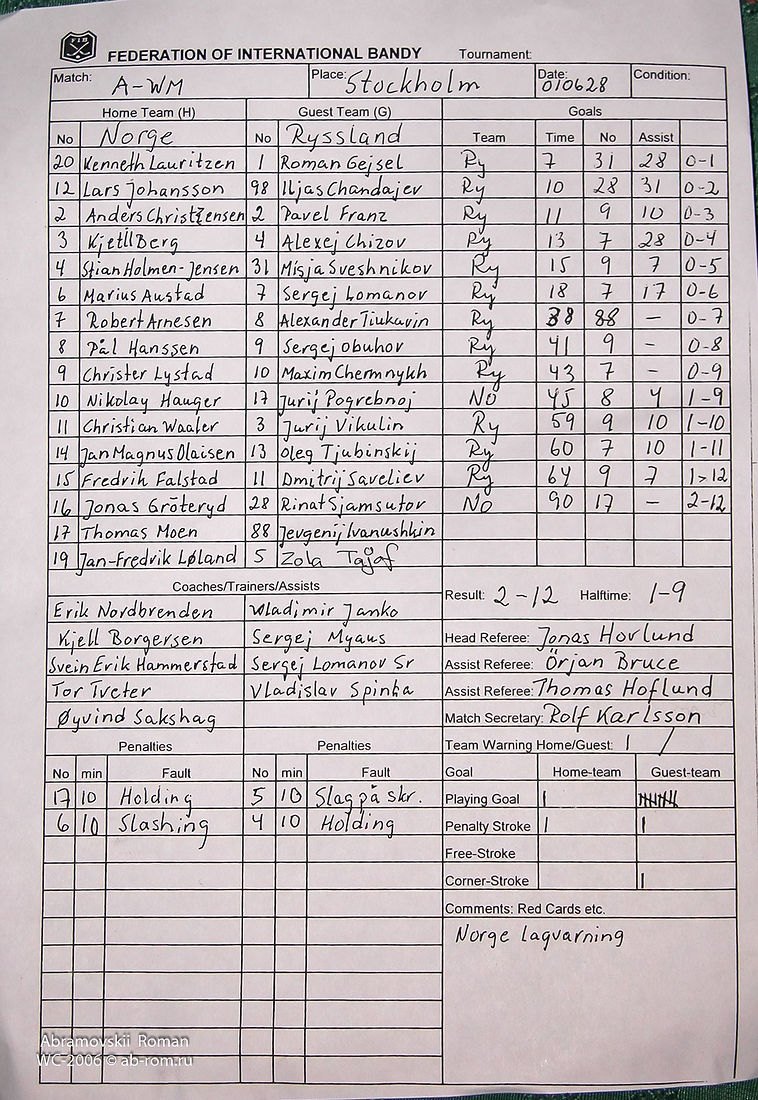 FIB
FEDERATION OF INTERNATIONAL BANDY Tournament:
Match: A-WM Place: Stockholm Date: 010628 Condition:
Home Team (H) Guest Team (G) Goals
No Norge No Ryssland Team Time No Assist
20 Kenneth Lauritzen 1 Roman Gejsel Ry 7 31 28 0-1
12 Lars Johansson 98 Iljas Chandajev Ry 10 28 31 0-2
2 Anders Christensen 2 Pavel Franz Ry 11 9 10 0-3
3 Kjetil Berg 4 Alexej Chizov Ry 13 7 28 0-4
4 Stian Holmen-Jensen 31 Misja Sveshnikov Ry 15 9 7 0-5
6 Marius Austad 7 Sergej Lomanov Ry 18 7 17 0-6
7 Robert Arnesen 8 Alexander Tiukavin Ry 38 88 - 0-7
8 Pål Hanssen 9 Sergej obuhov Ry 41 9 - 0-8
9 Christer Lystad 10 Maxim Chermnykh Ry 43 7 - 0-9
10 Nikolay Hauger 17 Jurij Pogrebnoj No 45 8 4 1-9
11 Christian Waaler 3 Jurij Vikulin Ry 59 9 10 1-10
14 Jan Magnus Olaisen 13 Oleg Tjubinskij Ry 60 7 10 1-11
15 Fredrik Falstad 11 Dmitrij Saveliev Ry 64 9 7 1-12
16 Jonas Gröteryd 28 Rinat Sjamsutov No 90 17 - 2-12
17 Thomas Moen 88 Jevgenij Ivanushkin
19 Jan-Fredrik Løland 5 Zola
Coaches/Trainers/Assists Result: 2-12 Halftime: 1-9
Erik Nordbrenden Vladimir Janko
Kjell Borgersen Sergej Myaus Head Referee: Jonas Hovlund
Svein Erik Hammerstad Sergej Lomanov Sr Assist Referee: Örjan Bruce
Tor Tveter Vladislav Spinka Assist Referee: Thomas Hoflund
Øyvind Sakshag Match Secretary: Rolf Karlsson
Penalties Penalties Team Warning Home/Guest: 1 /
No min Fault No min Fault Goal Home-team Guest-team
17 10 Holding 5 10 Slag på skr. Playing Goal |
6 10 Slashing 4 10 Holding Penalty Stroke | |
Free-Stroke
Corner-Stroke |
Comments: Red Cards etc.
Norge lagvarning
Abramovskii Roman
WC-2006 © ab-rom.ru